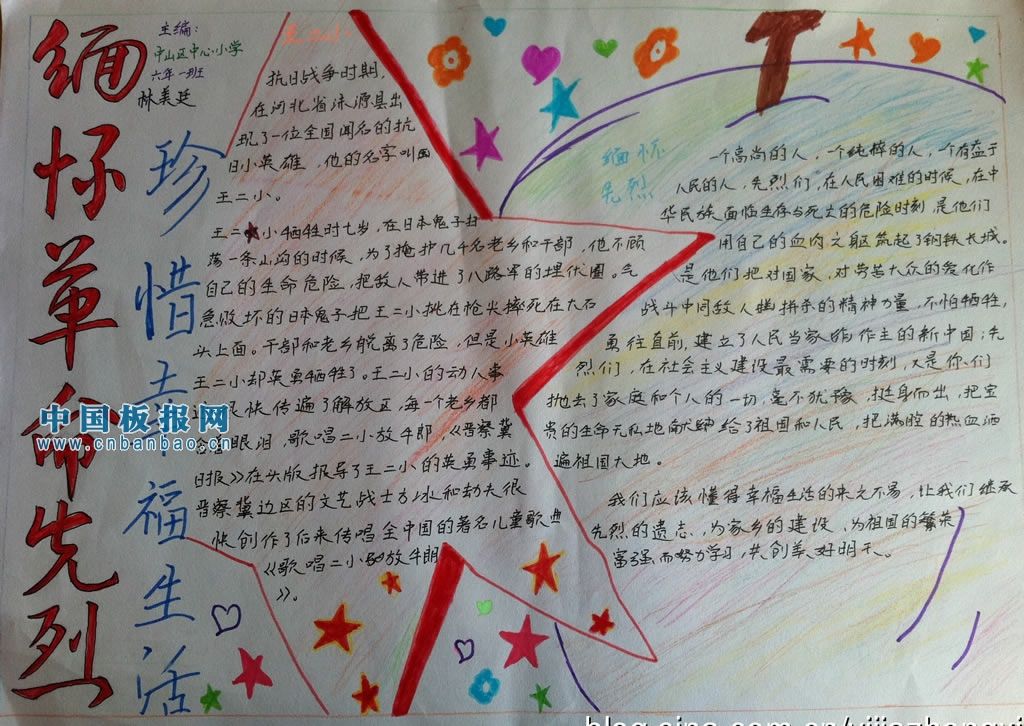 缅怀革命先烈
珍惜幸福生活
主编:
中山区中心小学
六年一班
林美廷
王二小
抗日战争时期,
在河北省涞源县出
现了一位全国闻名的抗
日小英雄,他的名字叫
王二小。
王二小牺牲时七岁,在日本鬼子扫
荡一条山沟的时候,为了掩护几千名老乡和干部,他不顾
自己的生命危险,把敌人带进了八路军的埋伏圈。气
急败坏的日本鬼子把王二小挑在枪尖摔死在大石
头上面。干部和老乡脱离了危险,但是小英雄
王二小却英勇牺牲了。王二小的动人事
很快传遍了解放区,每一个老乡都
含着眼泪,歌唱二小放牛郎,《晋察冀
日报》在头版报导了王二小的英勇事迹。
晋察冀边区的文艺战士方冰和劫夫很
快创作了后来传唱全中国的著名儿童歌曲
《歌唱二小放牛郎
》。
缅怀
先烈
一个高尚的人,一个纯粹的人,一个有益于
人民的人,先烈们,在人民困难的时候,在中
华民族面临生存与死亡的危险时刻是他们
用自己的血肉之躯筑起了钢铁长城。
是他们把对国家,对劳苦大众的爱化作
战斗中同敌人拼杀的精神力量,不怕牺牲,
勇往直前,建立了人民当家作主的新中国;先
烈们,在社会主义建设最需要的时刻,又是你们
抛去了家庭和个人的一切,毫不犹豫,挺身而出,把宝
贵的生命无私地献给了祖国和人民,把满腔的热血洒
遍祖国大地。
我们应该懂得幸福生活的来之不易,让我们继承
先烈的遗志,为家乡的建设、为祖国的繁荣
富强而努力学习,共创美好明天。
中国板报网
www.cnbanbao.cn